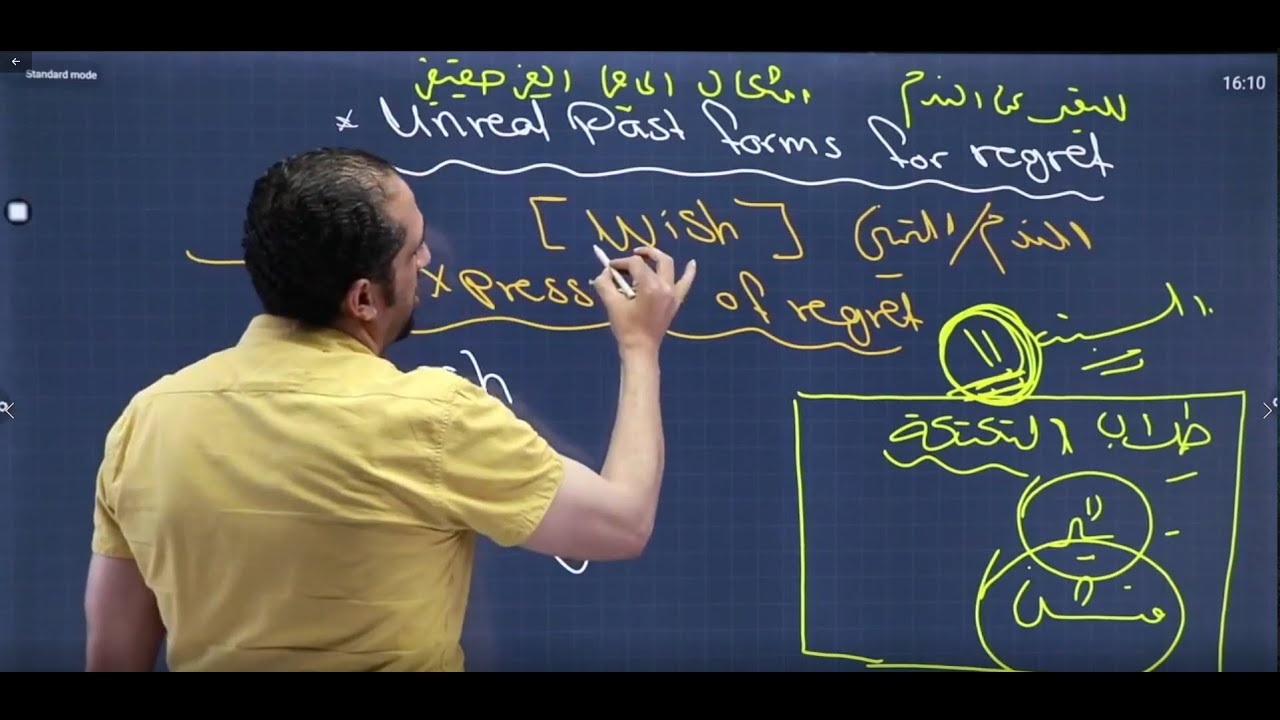 Standard mode
16:10
أشكال الماضي الغير حقيقي للتعبير عن الندم
* Unreal Past forms for regret
[Wish] التمني/الندم
xpress of regret
السنة
11
sh
طلاب التكتكة